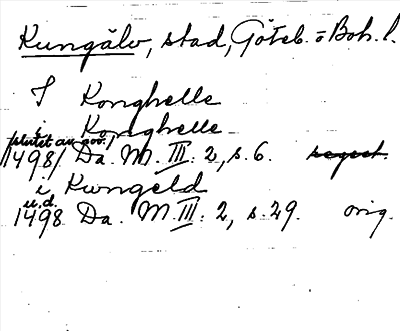 Kungälv, stad, Göteb. o Boh. l.
I Konghelle
i Konghelle
(slutet av nov.)
1498/ Da. M. III: 2, s. 6. regest.
i Kungeld
u.d.
1498 Da. M. III: 2, s. 29. orig.